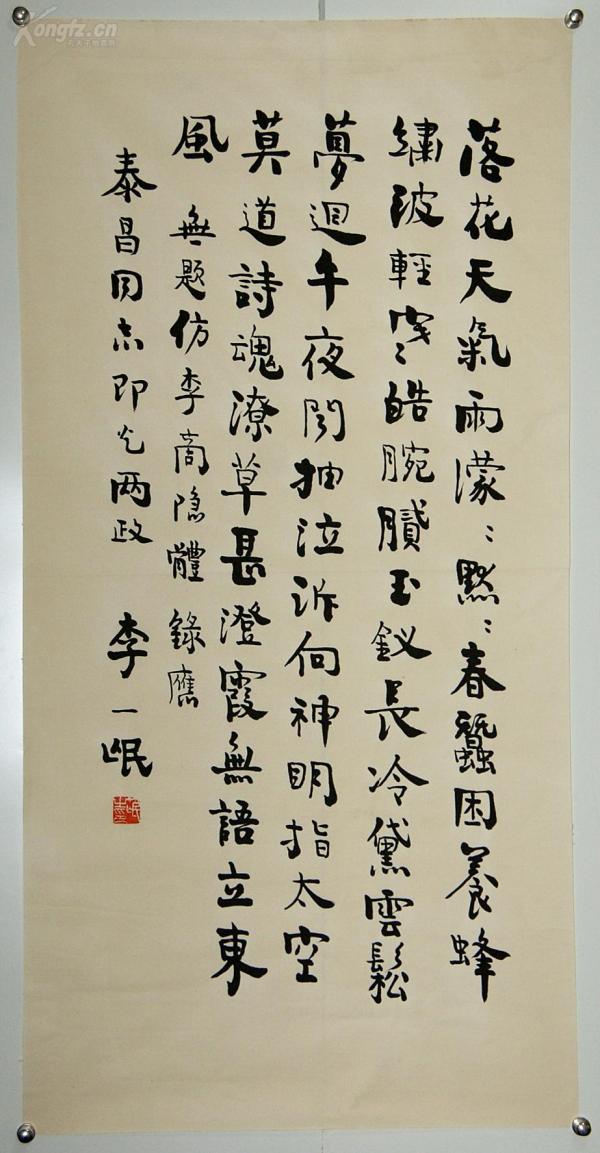 Kongfz.cn
落花天氣雨濛〻黙〻春蠶困養蜂
繡被輕寒皓腕膩玉釵長冷黛雲鬆
夢迴午夜聞抽泣訴向神明指太空
莫道詩魂潦草甚澄霞無語立東
風 無題仿李商隐體 錄應
泰昌同志即乞两政 李一氓